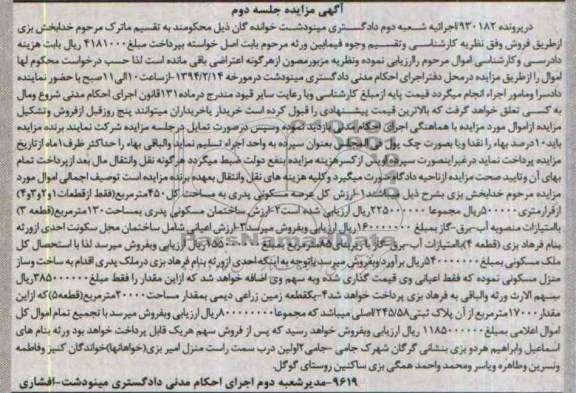 آگهی مزایده جلسه دوم
درپرونده ۹۳۰۱۸۲اجرائیه شعبه دوم دادگستری مینودشت خوانده گان ذیل محکومند به تقسیم ماترک مرحوم خدابخش بزی
ازطریق فروش وفق نظریه کارشناسی وتقسیم وجوه فیمابین ورثه مرحوم بابت اصل خواسته بپرداخت مبلغ۴۱۸۱۰۰۰ ریال بابت هزینه
دادرسی وکارشناسی اموال مرحوم راارزیابی نموده ونظریه مزبورمصون ازهرگونه اعتراضی باقی مانده است لذا حسب درخواست محکوم لها
اموال را ازطریق مزایده درمحل دفتراجرای احکام مدنی دادگستری مینودشت درمورخه ۱۳۹۴/۲/۱۴ -ازساعت۱۰الی۱۱صبح با حضور نماینده
دادسرا ومامور اجراء انجام میگردد قیمت پایه ازمبلغ کارشناسی وبا رعایت سایر قیود مندرج درماده۱۳۱قانون اجرای احکام مدنی شروع ومال
به کسی تعلق خواهد گرفت که بالاترین قیمت پیشنهادی را قبول کرده است خریدار یاخریداران میتوانند پنج روزقبل ازفروش وتشکیل
مزایده ازاموال مورد مزایده با هماهنگی اجرای احکام مدنی بازدید نموده وسپس درصورت تمایل درجلسه مزایده شرکت نمایند برنده مزایده
باید۱۰درصد بهاء را نقدا ویا بصورت چک پول بعنوان سپرده به واحد اجراء تسلیم نماید والباقی بهاء را حداکثر ظرف۱ماه ازتاریخ
مزایده پرداخت نماید درغیراینصورت سپرده کسر هزینه مزایده بنفع دولت ضبط میگردد هرگونه نقل وانتقال مال بعد ازپرداخت تمام
بهای آن وتایید صحت مزایده ازناحیه دادگاه صورت میگیرد وکلیه هزینه های نقل وانتقال بعهده برنده مزایده است توصیف اجمالی اموال مورد
مزایده مرحوم خدابخش بزی بشرح ذیل میباشد۱-ارزش کل عرصه مسکونی پدری به مساحت کل۴۵۰مترمربع(فقط ازقطعات۱و۲و۳و۴)
ازقرارمتری۵۰۰۰۰۰ریال مجموعا ۲۲۵۰۰۰۰۰۰ریال ارزیابی شده است۲-ارزش ساختمان مسکونی پدری بمساحت۱۳۰مترمربع(قطعه ۳)
باامتیازات منصوبه آب-برق-گاز بمبلغ۱۶۰۰۰۰۰۰۰ریال ارزیابی وبفروش میرسد۳-ارزش اعیانی شامل ساختمان محل سکونت احدی ازورثه
بنام فرهاد بزی (قطعه ۴)باامتیازات آب-برق ارزیابی وبفروش میرسد لذا با استحصال کل
ملک مسکونی بمبلغ۵۴۰۰۰۰۰۰۰ریال برآورد وبفروش میرسد باتوجه به اینکه احدی ازورثه بنام فرهاد بزی درملک پدری اقدام به ساخت وساز
منزل مسکونی نموده که فقط اعیانی وی قیمت گذاری شده وبه سهم وی اضافه خواهد شد که ازاین مقدار را فقط مبلغ۳۸۵۰۰۰۰۰۰ریال
بسهم الارث ورثه والباقی به فرهاد بزی پرداخت خواهد شد۴-یکقطعه زمین زراعی دیمی بمقدار مساحت۲۰۰۰۰مترمربع(قطعه۵)که ازاین
مقدار۱۷۰۰۰مترمربع از آن پلاک ثبتی۲۴۵/۵۸اصلی میباشد که مجموعا۸۰۰۰۰۰۰۰۰ریال ارزیابی وبفروش میرسد با تجمیع تمام اموال کل
اموال اعلامی بمبلغ۱۱۸۵۰۰۰۰۰۰ ریال ارزیابی وبفروش خواهد رسید که پس از فروش سهم هریک قابل پرداخت خواهد بود ورثه بنام های
اسماعیل وابراهیم هردو بزی بنشانی گرگان شهرک جامی -جامی۲اولین درب سمت راست منزل امیر بزی(خواهانها)خواندگان کنیز وفاطمه
ونسرین وطاهره ویاسر ومحمد واحمد همگی بزی ساکنین روستای گوگل.
۹۶۱۹-مدیرشعبه دوم اجرای احکام مدنی دادگستری مینودشت-افشاری